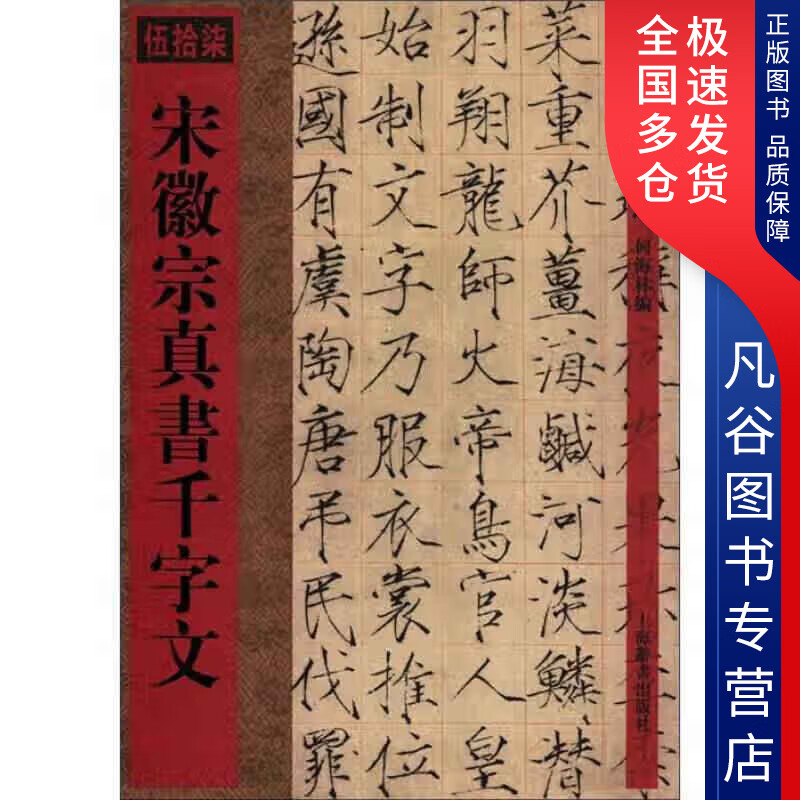 伍拾柒
宋徽宗真書千字文
菜重芥薑海鹹河淡鱗潛
羽翔龍師火帝鳥官人皇
始制文字乃服衣裳推位
遜國有虞陶唐弔民伐罪
何海林編
上海辭書出版社
极速发货
全国多仓
正版图书 品质保障
凡谷图书专营店